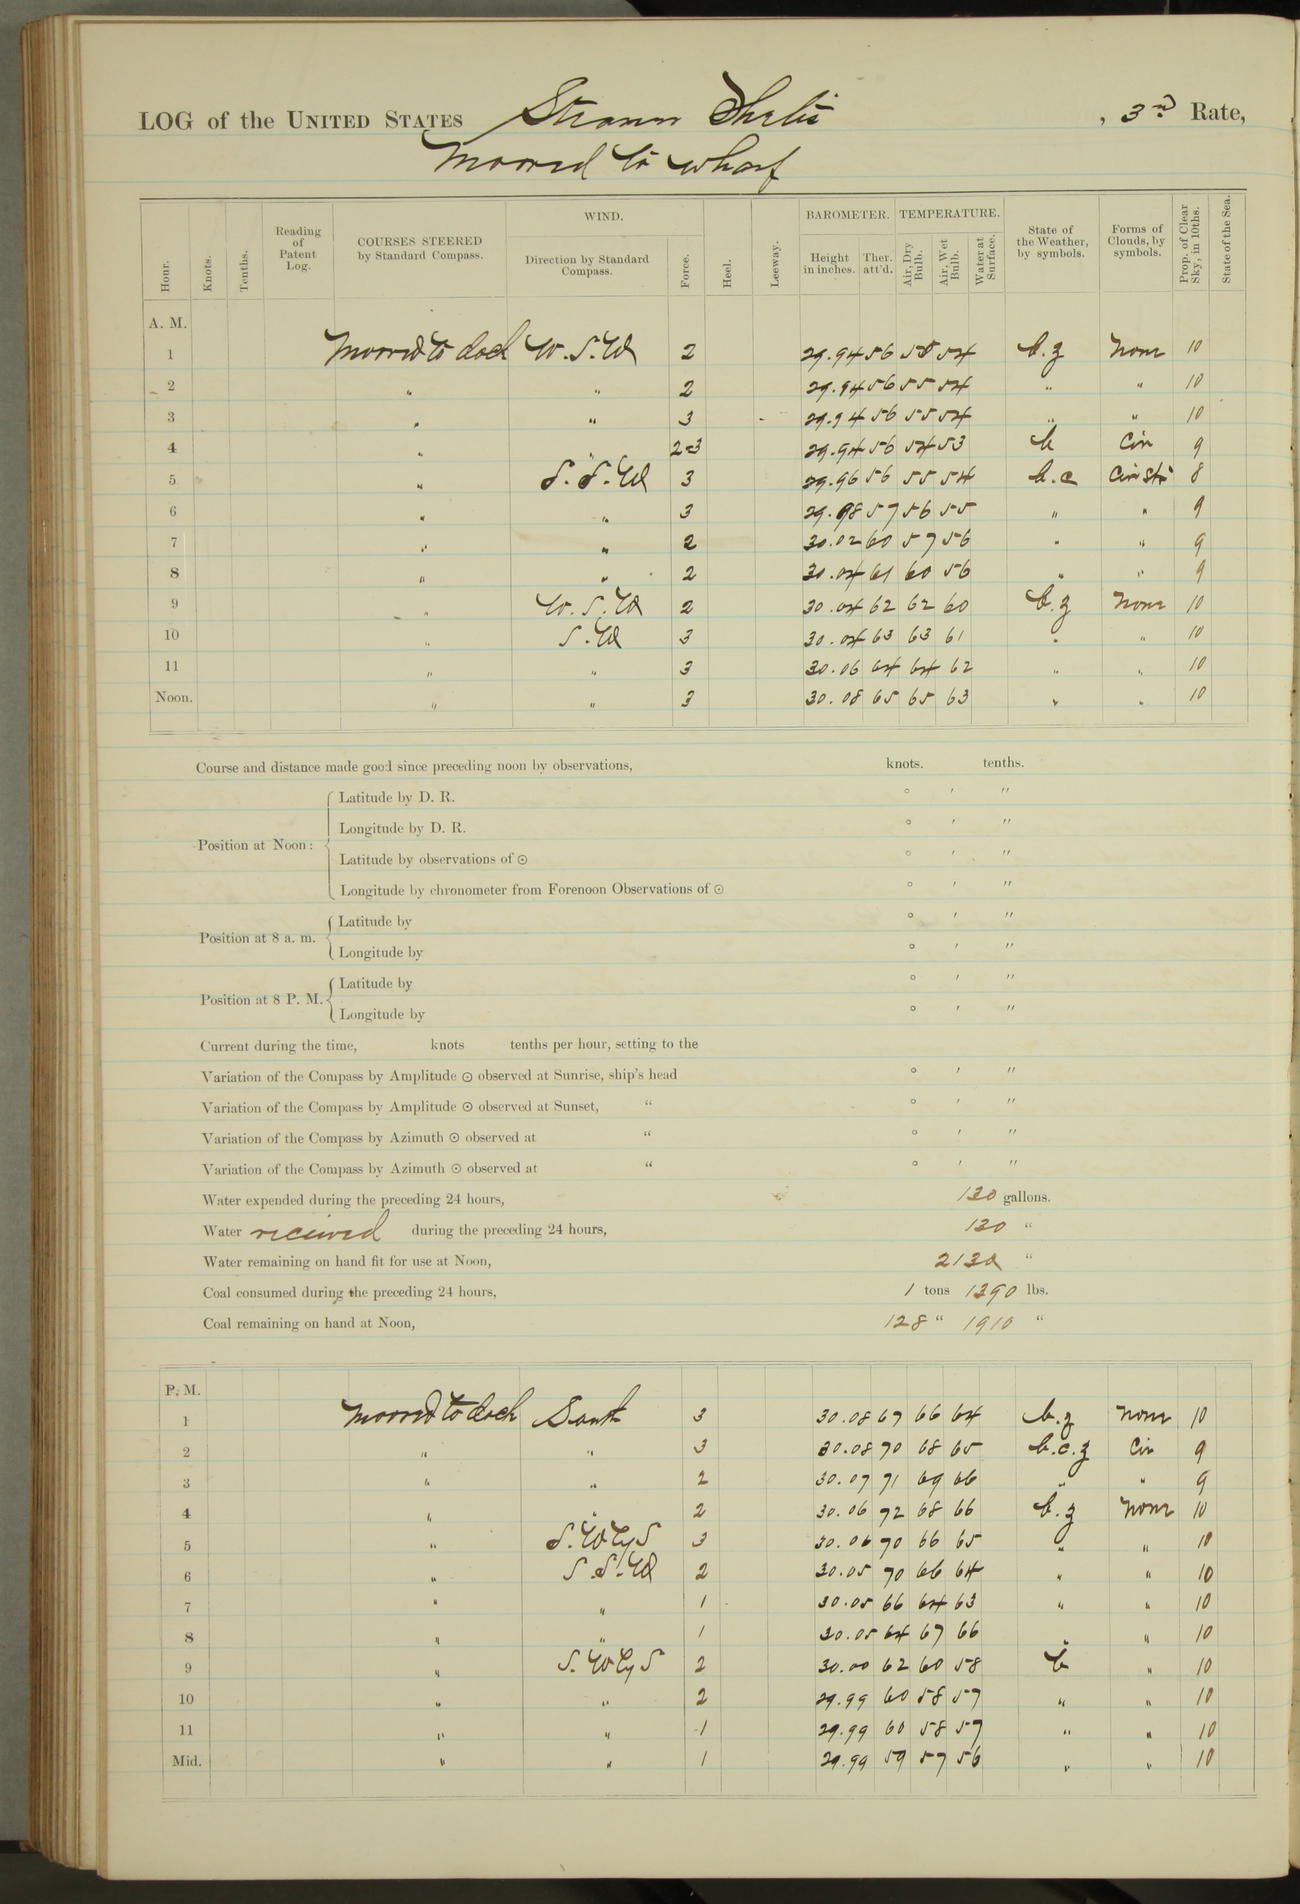 LOG of the UNITED STATES Steamer Thetis , 3rd Rate,
Moored to wharf
Hour. Knots. Tenths. Reading of Patent Log. COURSES STEERED by Standard Compass. WIND. Direction by Standard Compass. Force. Heel. Leeway. BAROMETER. Height in inches. Ther. att'd. TEMPERATURE. Air, Dry Bulb. Air, Wet Bulb. Water at Surface. State of the Weather, by symbols. Forms of Clouds, by symbols. Prop. of Clear Sky, in 10ths. State of the Sea.
A. M.
1 Moored to dock W.S.W 2 29.94 56 55 54 b.z None 10
2 " " 2 29.94 56 55 54 " " 10
3 " " 3 29.94 56 55 54 " " 10
4 " " 2-3 29.94 56 54 53 b Cir 9
5 " S.S.W 3 29.96 56 55 54 b.c Cir Str 8
6 " " 3 29.98 57 56 55 " " 9
7 " " 2 30.02 60 57 56 " " 9
8 " " 2 30.04 61 60 56 " " 9
9 " W.S.W 2 30.04 62 62 60 b.z None 10
10 " S.W 3 30.04 63 63 61 " " 10
11 " " 3 30.06 64 64 62 " " 10
Noon. " " 3 30.08 65 65 63 " " 10
Course and distance made good since preceding noon by observations, knots. tenths.
Position at Noon: Latitude by D. R. ° ' "
Longitude by D. R. ° ' "
Latitude by observations of ⊙ ° ' "
Longitude by chronometer from Forenoon Observations of ⊙ ° ' "
Position at 8 a. m. Latitude by ° ' "
Longitude by ° ' "
Position at 8 P. M. Latitude by ° ' "
Longitude by ° ' "
Current during the time, knots tenths per hour, setting to the
Variation of the Compass by Amplitude ⊙ observed at Sunrise, ship's head ° ' "
Variation of the Compass by Amplitude ⊙ observed at Sunset, " ° ' "
Variation of the Compass by Azimuth ⊙ observed at " ° ' "
Variation of the Compass by Azimuth ⊙ observed at " ° ' "
Water expended during the preceding 24 hours, 130 gallons.
Water received during the preceding 24 hours, 130 "
Water remaining on hand fit for use at Noon, 2130 "
Coal consumed during the preceding 24 hours, 1 tons 1390 lbs.
Coal remaining on hand at Noon, 128 " 1910 "
P. M.
1 Moored to dock South 3 30.08 67 66 64 b.z None 10
2 " " 3 30.08 70 68 65 b.c.z Cir 9
3 " " 2 30.07 71 69 66 " " 9
4 " " 2 30.06 72 68 66 b.z None 10
5 " S.W by S 3 30.06 70 66 65 " " 10
6 " S.S.W 2 30.05 70 66 64 " " 10
7 " " 1 30.05 66 64 63 " " 10
8 " " 1 30.05 64 67 66 " " 10
9 " S.W by S 2 30.00 62 60 58 b " 10
10 " " 2 29.99 60 58 57 " " 10
11 " " 1 29.99 60 58 57 " " 10
Mid. " " 1 29.99 59 57 56 " " 10